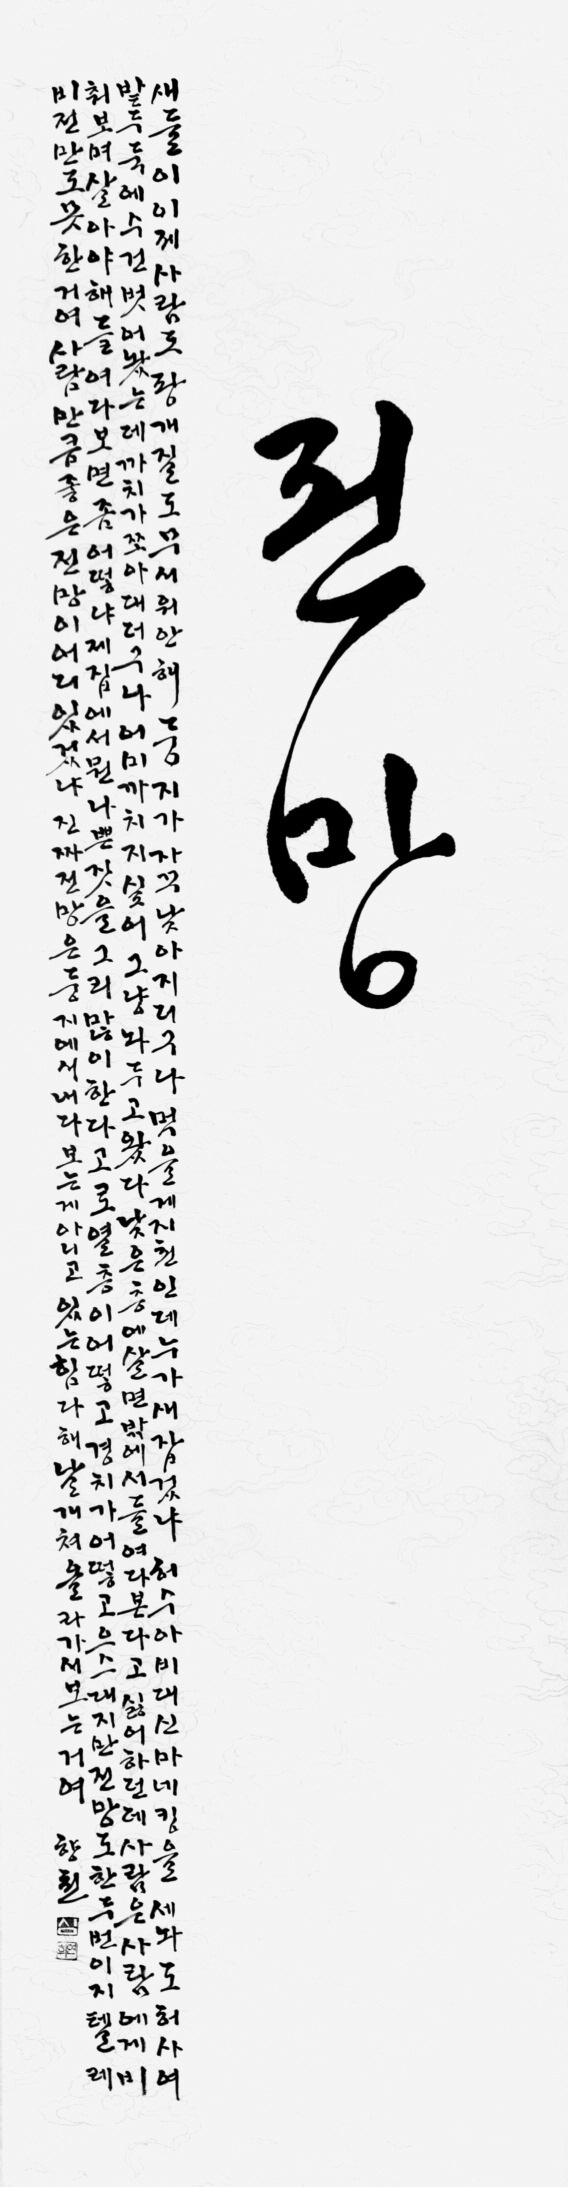 전망
새들이 이제 사람도 팡개질도 무서워 안 해 둥지가 자꾸 낮아지더구나 먹을 게 지천인데 누가 새 잡겠냐 허수아비 대신 마네킹을 세놔도 허사여
밭두둑에 수건 벗어놨는데 까치가 쪼아대더구나 어미 까치지 싶어 그냥 놔두고 왔다 낮은 층에 살면 밖에서 들여다본다고 싫어하던데 사람은 사람에게 비
춰보며 살아야 해 들여다보면 좀 어떻냐 제 집에서 뭔 나쁜 짓을 그리 많이 한다고 로열층이 어떻고 경치가 어떻고 으스대지만 전망도 한두 번이지 텔레
비전만도 못한 거여 사람만큼 좋은 전망이 어디 있겠냐 진짜 전망은 둥지에서 내다보는 게 아니고 있는 힘 다해 날개 쳐 올라가서 보는 거여 향원